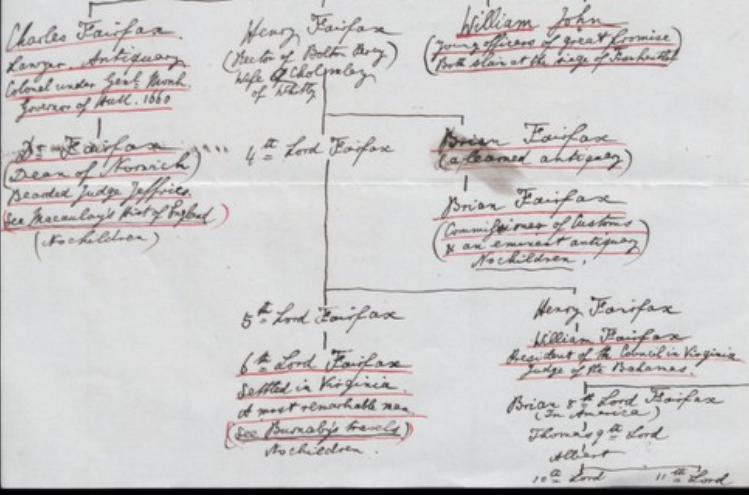 Charles Fairfax
Lawyer, Antiquary
Colonel under Genl. Monk.
Governor of Hull. 1660
Dr Fairfax
(Dean of Norwich)
Bearded Judge Jeffries.
See Macaulay's Hist of England)
(No children)
Henry Fairfax
(Rector of Bolton Percy)
Wife Cholmley
of Whitby
4th Lord Fairfax
5th Lord Fairfax
6th Lord Fairfax
Settled in Virginia.
A most remarkable man
(See Burnaby's travels)
No children.
William John
(young officers of great promise
Both slain at the siege of
Brian Fairfax
(a learned antiquary)
Brian Fairfax
(Commissioner of Customs
& an eminent antiquary
No children.
Henry Fairfax
William Fairfax
President of the Council in Virginia
Judge of the Bahamas.
Brian 8th Lord Fairfax
(In America)
Thomas 9th Lord
Albert
10th Lord 11th Lord